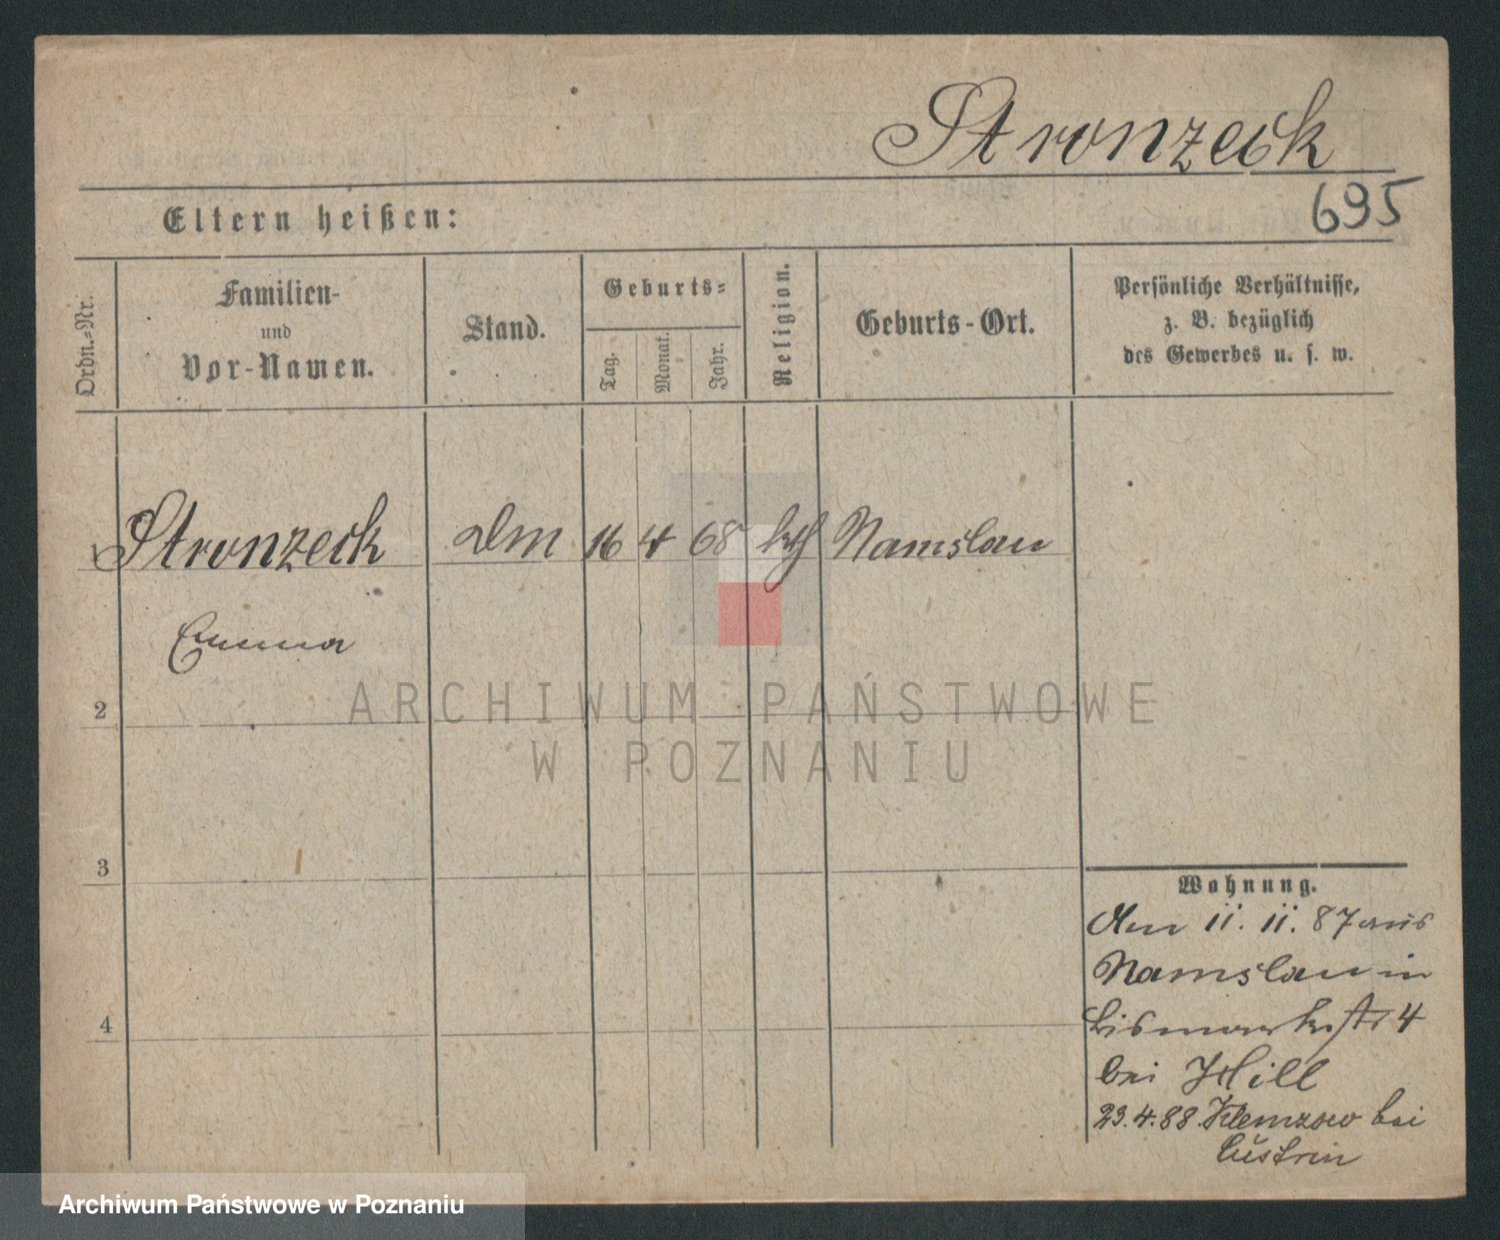 Stronzeck
695
Eltern heißen:
Ordn.-Nr.
Familien-
und
Vor-Namen.
Stand.
Geburts-
Tag.
Monat.
Jahr.
Religion.
Geburts-Ort.
Persönliche Verhältnisse,
z. B. bezüglich
des Gewerbes u. s. w.
1 Stronzeck 16 4 68 kth Namslau
Emma
2
3
4
Wohnung.
Am 11. 11. 87 aus
Namslau in
Bismarckstr 4
bei Hill
23.4.88. Klemzow bei
Cüstrin
ARCHIWUM PAŃSTWOWE
W POZNANIU
Archiwum Państwowe w Poznaniu